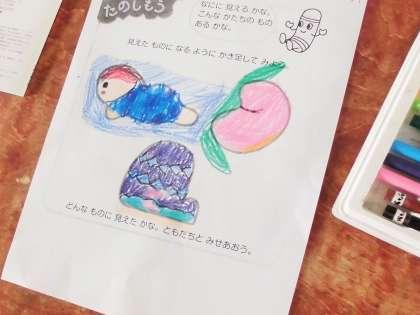 たのしもう
なにに 見える かな。
こんな かたちの もの
ある かな。
見えた ものに なる ように かき足して みよ
どんな ものに 見えた かな。ともだちと みせあおう。